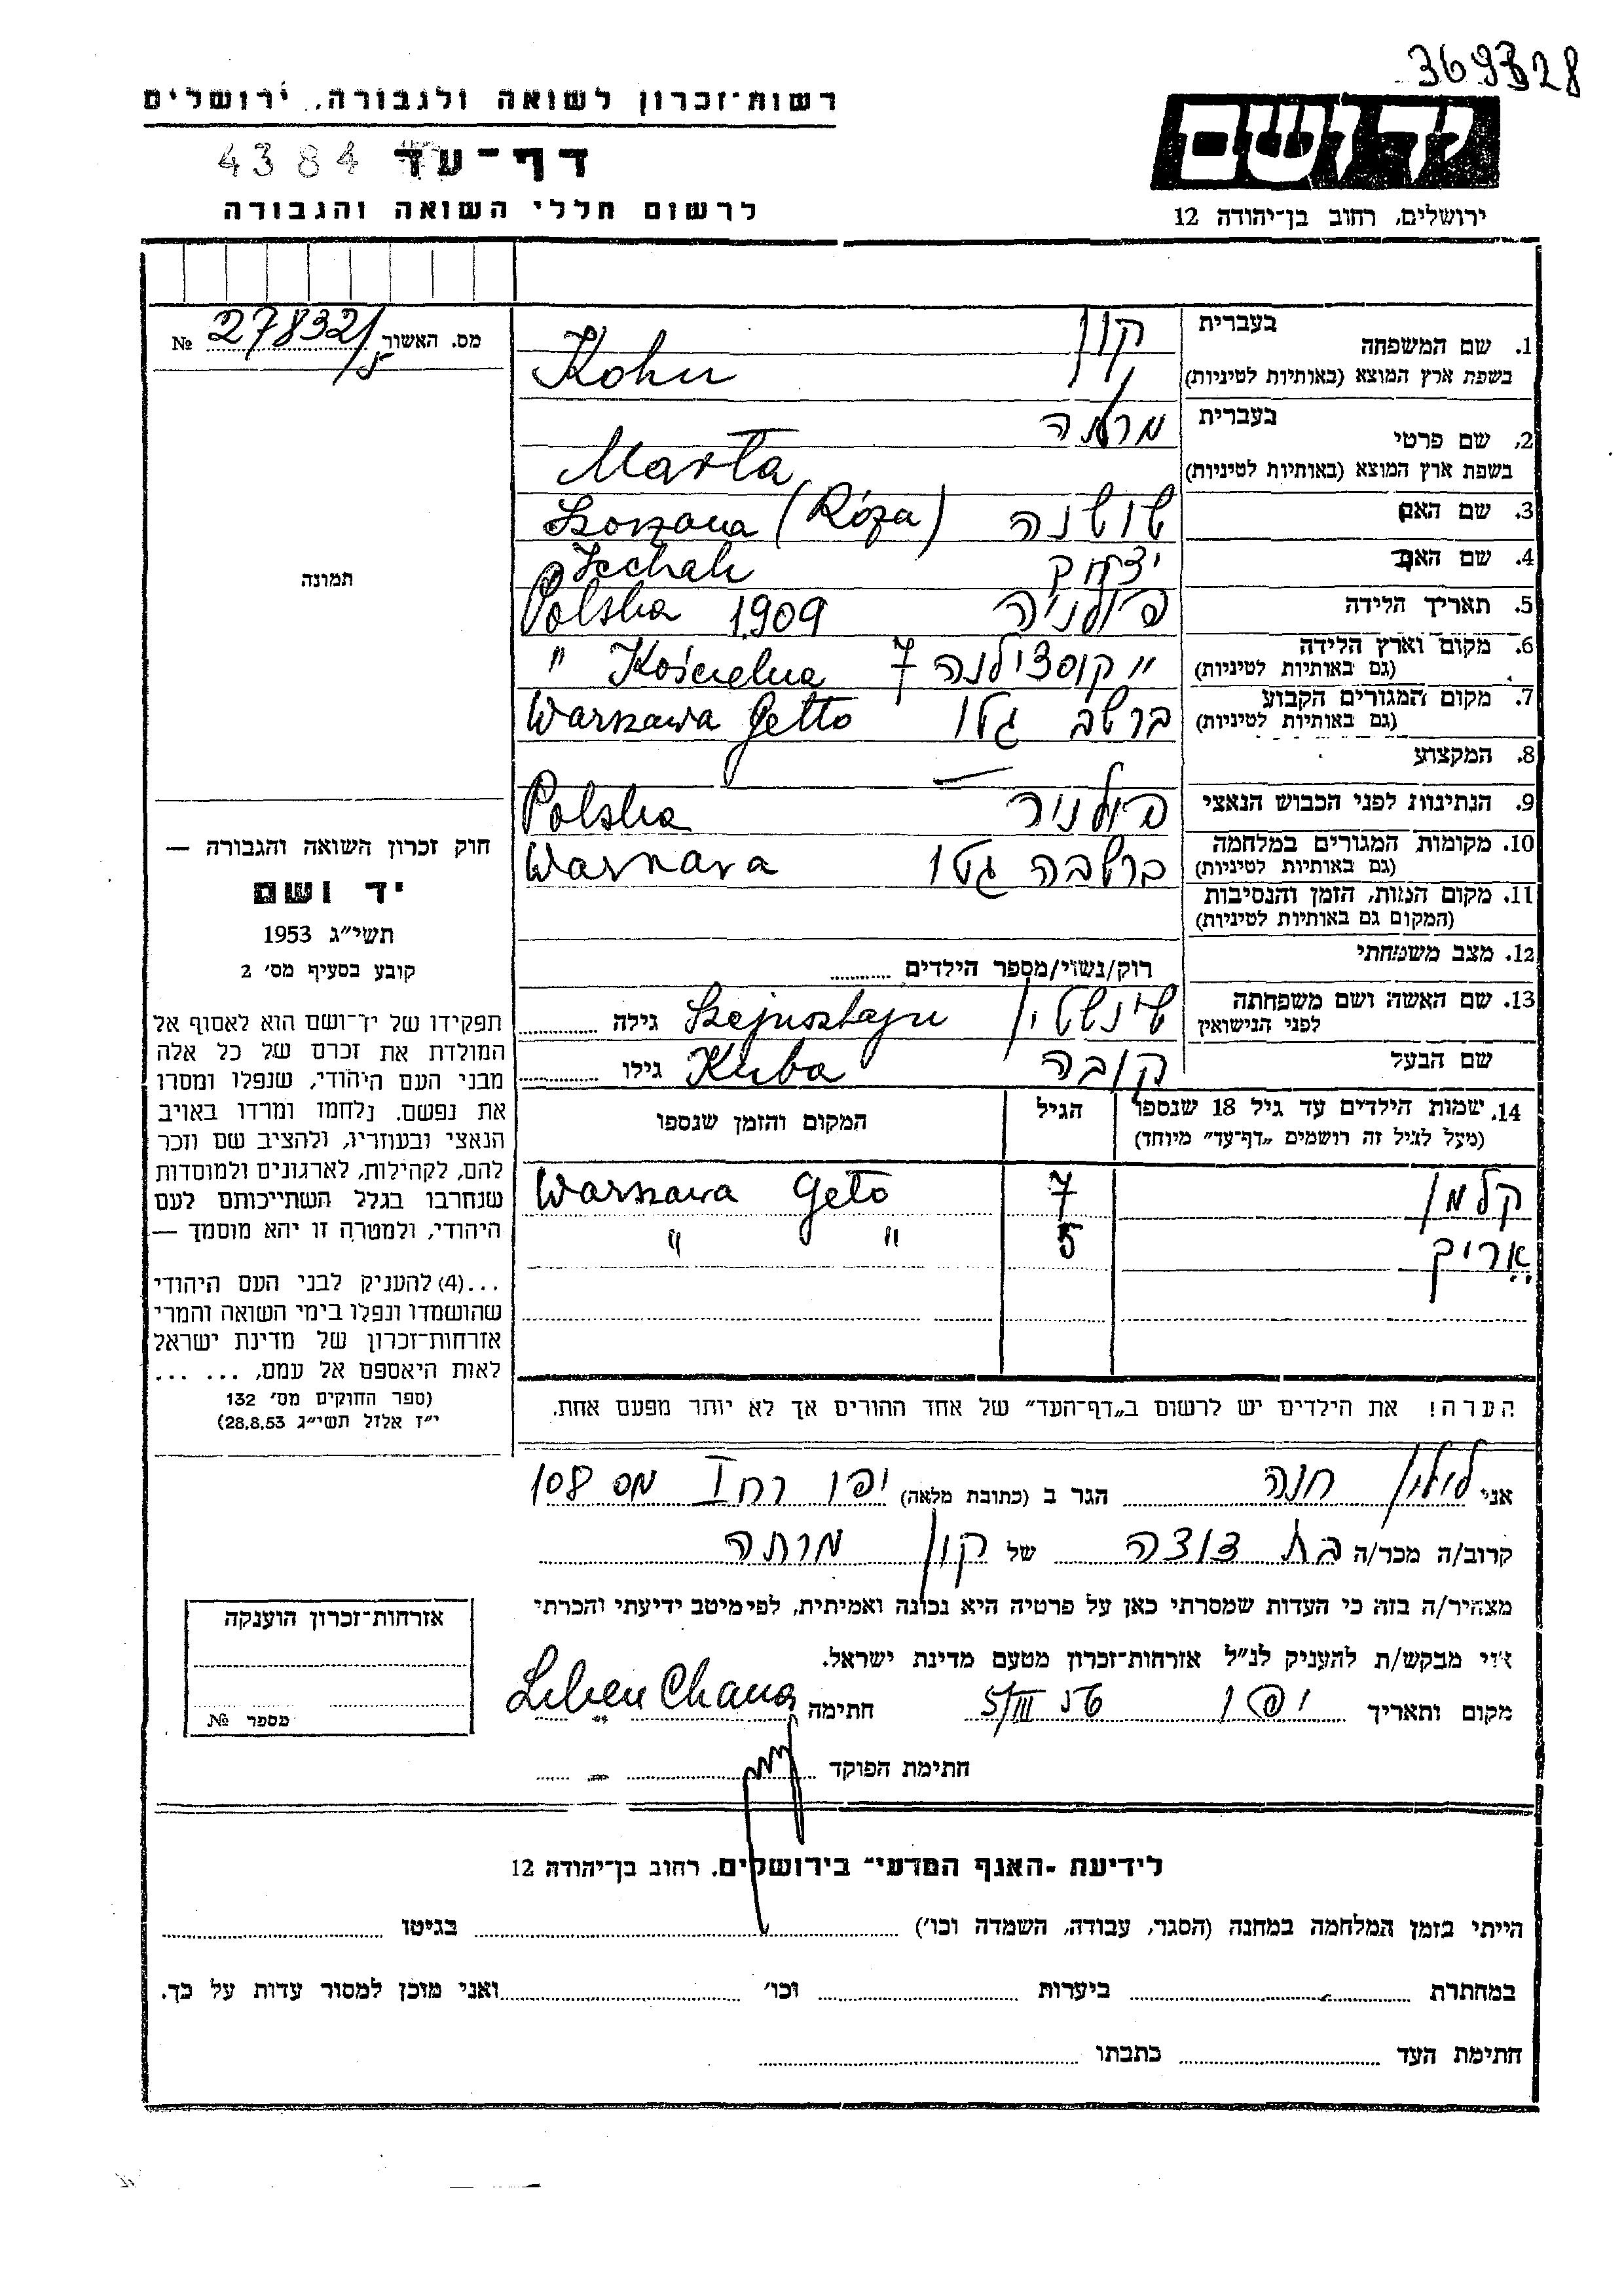 369328
רשות-זכרון לשואה ולגבורה, ירושלים
דף-עד 4384
לרשום חללי השואה והגבורה
יד ושם
ירושלים, רחוב בן-יהודה 12
מס. האשור 27832/5 №
תמונה
חוק זכרון השואה והגבורה —
יד ושם
תשי"ג 1953
קובע בסעיף מס' 2
תפקידו של יד-ושם הוא לאסוף אל
המולדת את זכרם של כל אלה
מבני העם היהודי, שנפלו ומסרו
את נפשם. נלחמו ומרדו באויב
הנאצי ובעוזריו, ולהציב שם וזכר
להם, לקהילות, לארגונים ולמוסדות
שנחרבו בגלל השתייכותם לעם
היהודי, ולמטרה זו יהא מוסמך —
...(4) להעניק לבני העם היהודי
שהושמדו ונפלו בימי השואה והמרי
אזרחות-זכרון של מדינת ישראל
לאות היאספם אל עמם, ... ...
(ספר החוקים מס' 132
י"ז אלול תשי"ג 28.8.53)
1. שם המשפחה בעברית קון
בשפת ארץ המוצא (באותיות לטיניות) Kohn
2. שם פרטי בעברית מרתה
בשפת ארץ המוצא (באותיות לטיניות) Marta
3. שם האם שושנה Szoszana (Róza)
4. שם האב יצחק Icchak
5. תאריך הלידה פולניה Polska 1909
6. מקום וארץ הלידה (גם באותיות לטיניות) " קוסצילנה 7 Kościelna "
7. מקום המגורים הקבוע (גם באותיות לטיניות) ורשב גטו Warszawa Getto
8. המקצוע —
9. הנתינות לפני הכבוש הנאצי פולניה Polska
10. מקומות המגורים במלחמה (גם באותיות לטיניות) ורשבה גטו Warszawa
11. מקום המות, הזמן והנסיבות (המקום גם באותיות לטיניות)
12. מצב משפחתי רוק/נשוי/מספר הילדים
13. שם האשה ושם משפחתה לפני הנישואין שינשטין Szejnsztajn גילה
שם הבעל קובה Kuba גילו
14. שמות הילדים עד גיל 18 שנספו (מעל לגיל זה רושמים "דף-עד" מיוחד) הגיל המקום והזמן שנספו
קלמן 7 Warszawa Geto
אריק 5 " "
הערה! את הילדים יש לרשום ב"דף-העד" של אחד ההורים אך לא יותר מפעם אחת.
אני חנה הגר ב (כתובת מלאה) יפו רח I מס 108
קרוב/ה מכר/ה בת דודה של קון מרתה
מצהיר/ה בזה כי העדות שמסרתי כאן על פרטיה היא נכונה ואמיתית, לפי מיטב ידיעתי והכרתי
אני מבקש/ת להעניק לנ"ל אזרחות-זכרון מטעם מדינת ישראל.
מקום ותאריך יפו 5/III חתימה Liben Chana
חתימת הפוקד
אזרחות-זכרון הוענקה
מספר №
לידיעת "האגף המדעי" בירושלים, רחוב בן-יהודה 12
הייתי בזמן המלחמה במחנה (הסגר, עבודה, השמדה וכו') בגיטו
במחתרת ביערות וכו' ואני מוכן למסור עדות על כך.
חתימת העד כתבתו